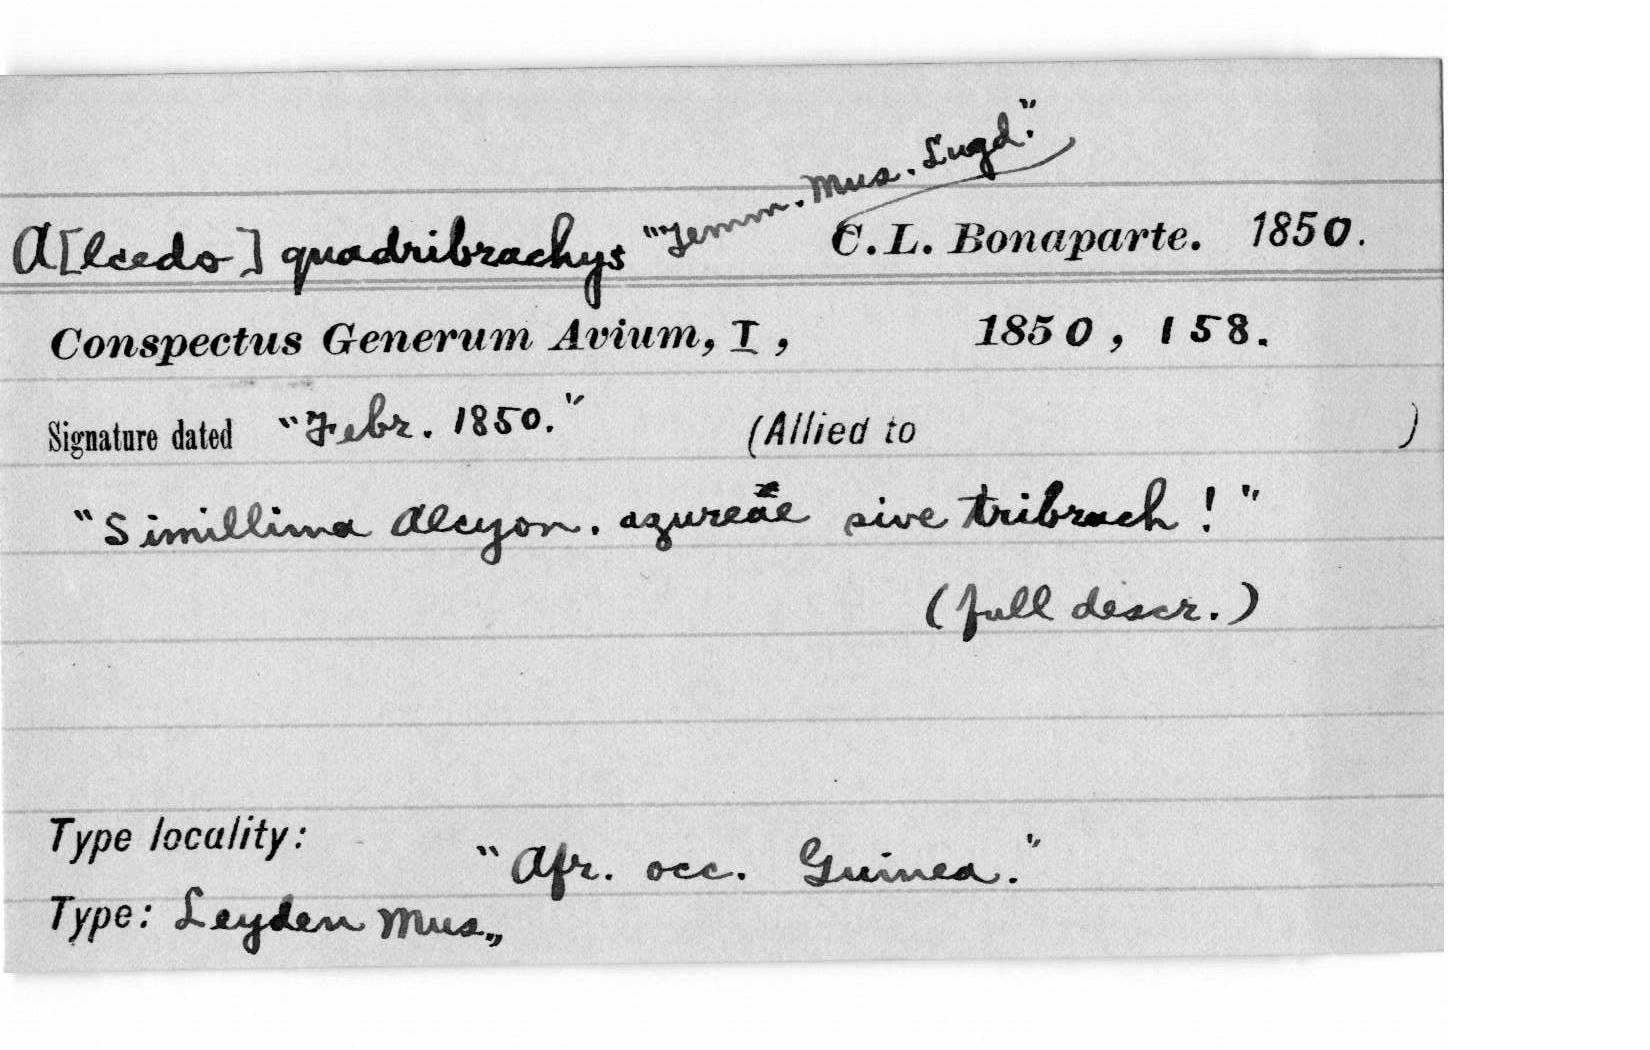 A[lcedo] quadribrachys "Temm. Mus. Lugd." C.L. Bonaparte. 1850.
Conspectus Generum Avium, I, 1850, 158.
Signature dated "Febr. 1850." (Allied to )
"Simillima Alcyon. azureae sive tribrach!"
(full descr.)
Type locality: "Afr. occ. Guinea."
Type: Leyden Mus.,